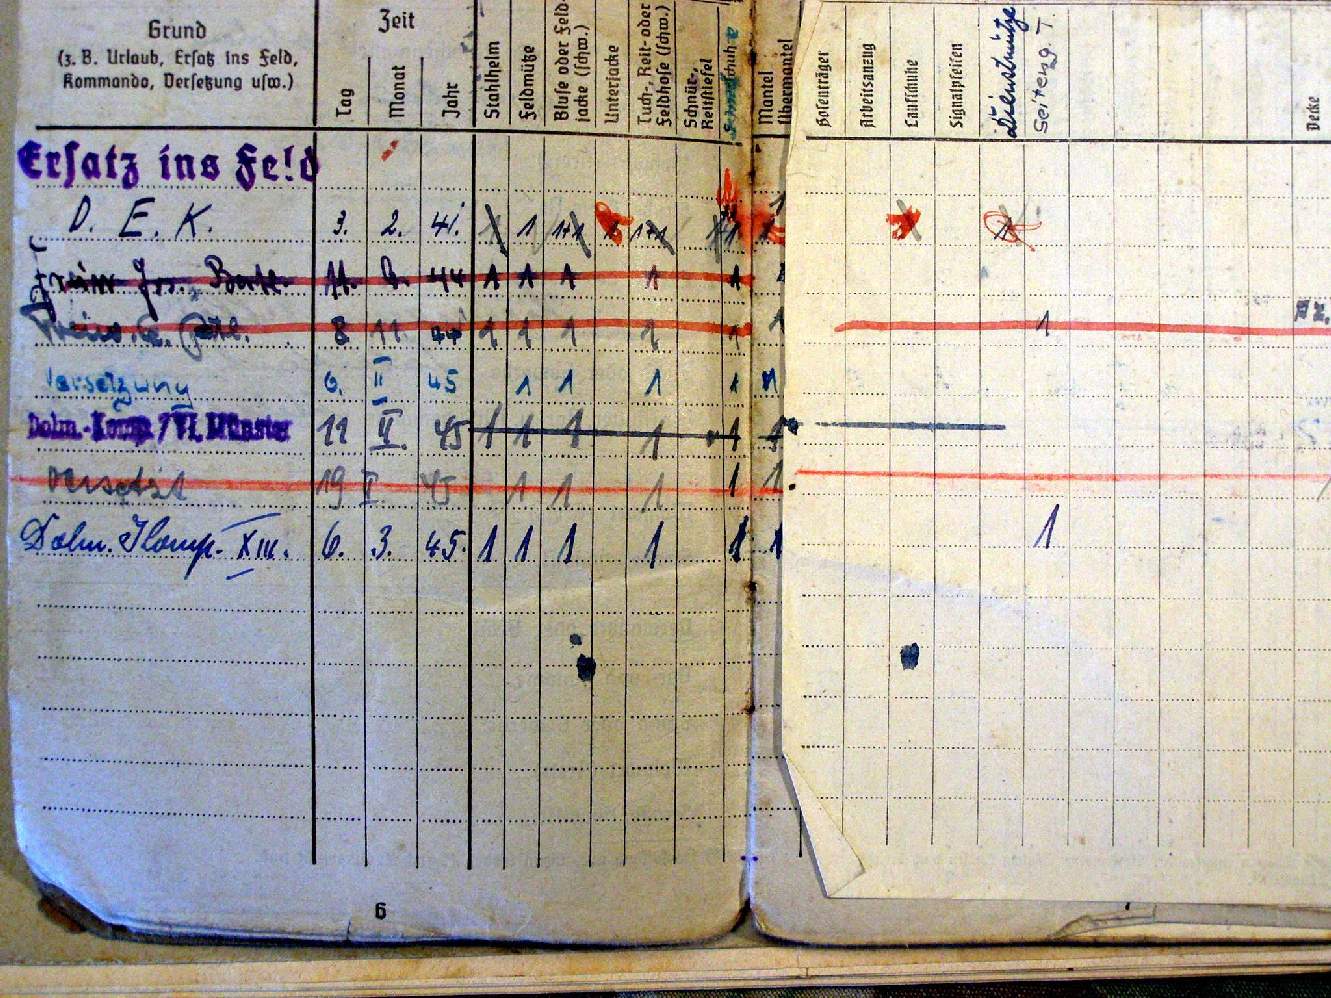 Grund
(z. B. Urlaub, Ersatz ins Feld,
Kommando, Versetzung usw.)
Zeit
Tag
Monat
Jahr
Stahlhelm
Feldmütze
Bluse oder Feld-
jacke (schw.)
Unterjacke
Tuch-, Reit- oder
Feldhose (schw.)
Schnür-,
Reitstiefel
Mantel
Übermantel
Hosenträger
Arbeitsanzug
Laufschuhe
Signalpfeifen
Seiteng. T.
Decke
Ersatz ins Feld
D. E. K. 3. 2. 41. 1 1 1+1 1 1+1
11. 9. 44 1 1 1 1 1
8 11. 44 1 1 1 1 1 1 1
Versetzung 6. II 45 1 1 1 1
Dolm.-Komp. / VI. Münster 11 II 45 1 1 1 1 1 1
versetzt 19 I 45 1 1 1 1 1
Dolm. Komp. XIII. 6. 3. 45. 1 1 1 1 1 1 1
6